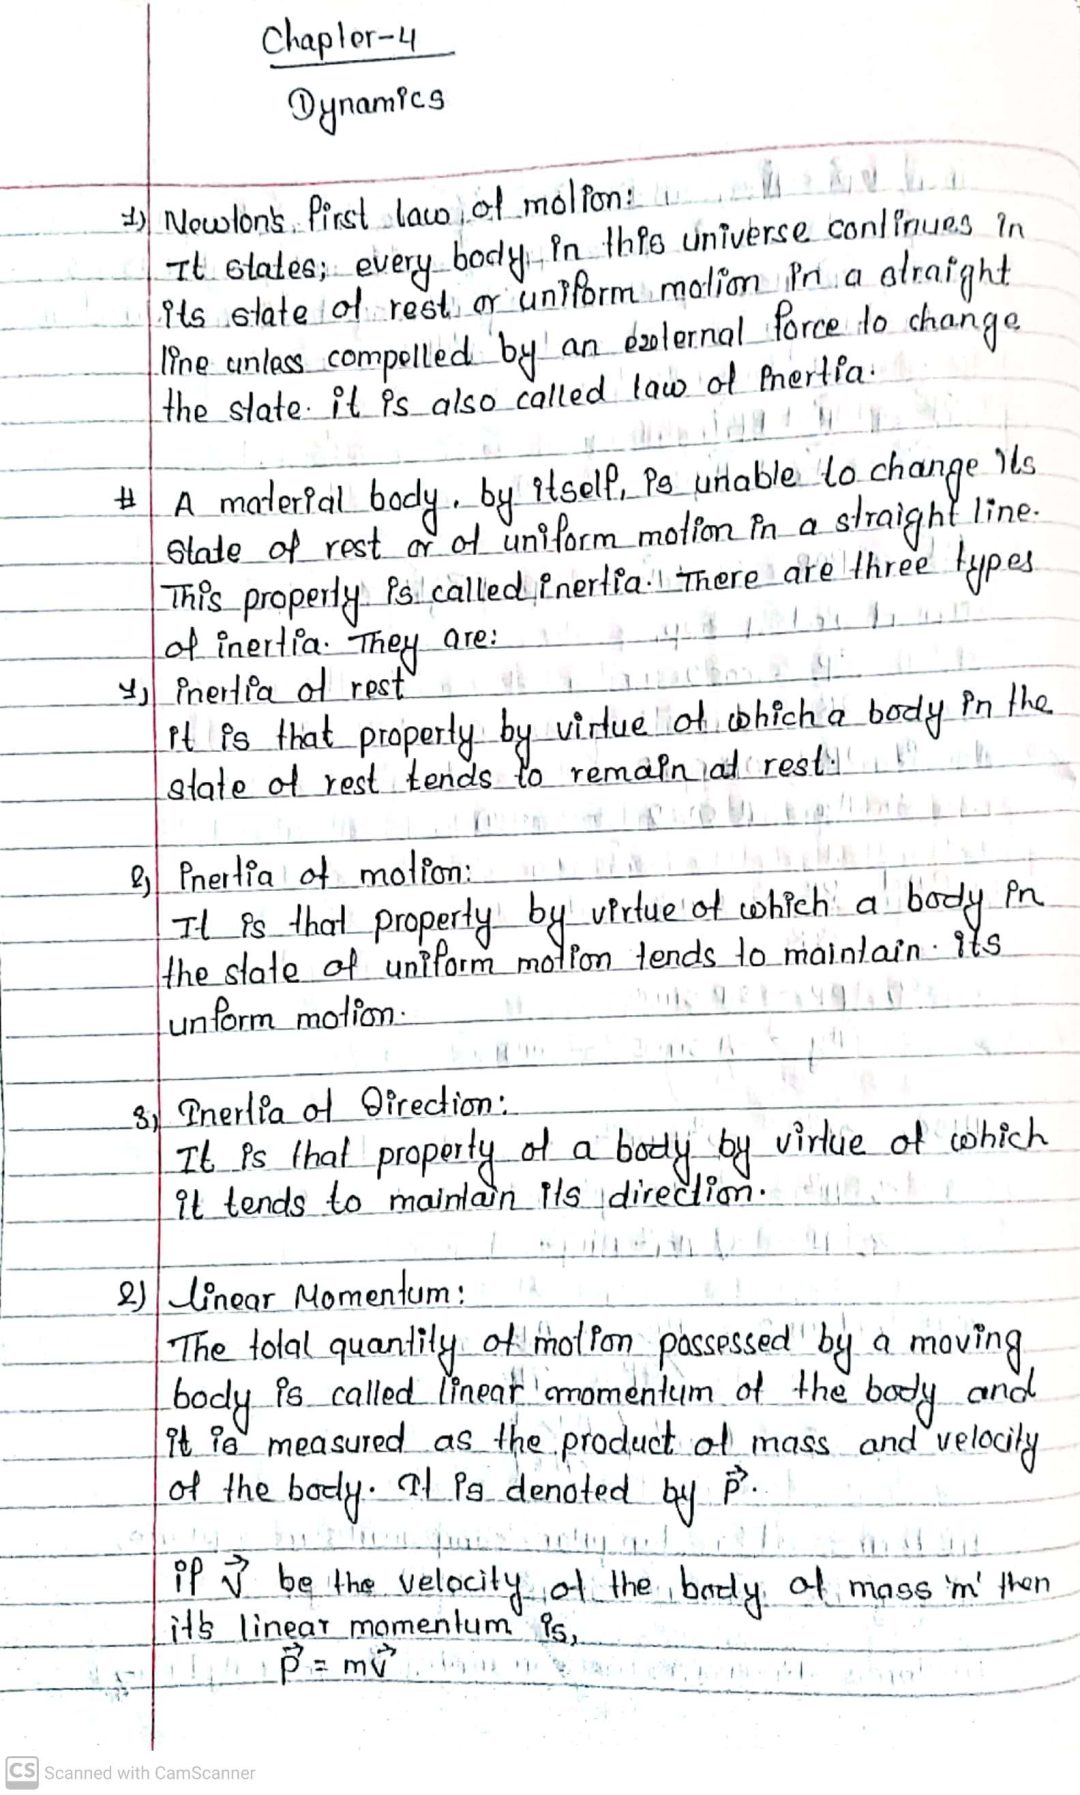 Chapter-4
Dynamics
1) Newton's first law of motion:
It states; every body in this universe continues in
its state of rest or uniform motion in a straight
line unless compelled by an external force to change
the state. it is also called law of inertia.
# A material body, by itself, is unable to change its
state of rest or of uniform motion in a straight line.
This property is called inertia. There are three types
of inertia. They are:
1) inertia of rest
it is that property by virtue of which a body in the
state of rest tends to remain at rest.
2) inertia of motion:
It is that property by virtue of which a body in
the state of uniform motion tends to maintain its
unform motion.
3) Inertia of Direction:
It is that property of a body by virtue of which
it tends to maintain its direction.
2) linear Momentum:
The total quantity of motion possessed by a moving
body is called linear momentum of the body and
it is measured as the product of mass and velocity
of the body. It is denoted by p⃗.
if v⃗ be the velocity of the body of mass 'm' then
it's linear momentum is,
p⃗ = mv⃗
CS Scanned with CamScanner